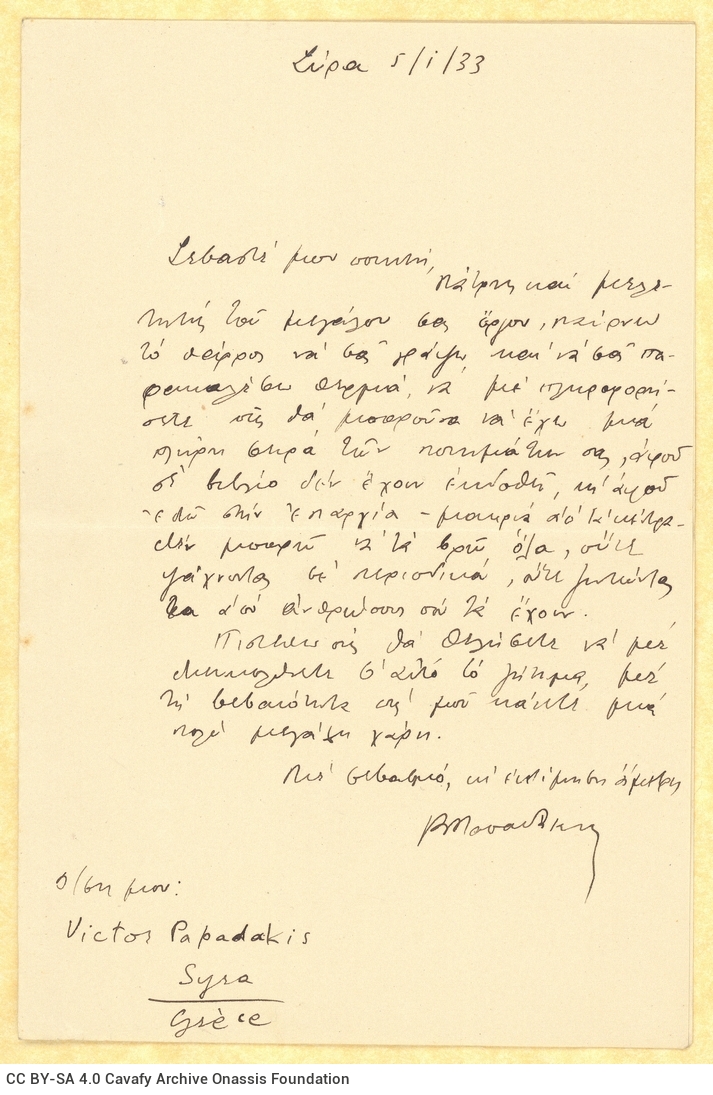 Σύρα 5/1/33
Σεβαστέ μου ποιητή,
λάτρης καί μελε-
τητής τοῦ μεγάλου σας ἔργου, παίρνω
τό θάρρος νά σᾶς γράψω, καί νά σᾶς πα-
ρακαλέσω θερμά, νά μέ πληροφορή-
σετε πῶς θά μποροῦσα νά ἔχω μιά
πλήρη σειρά τῶν ποιημάτων σας, ἀφοῦ
σέ βιβλίο δέν ἔχουν ἐκδοθῆ, κι' ἀφοῦ
ἐδῶ στήν ἐπαρχία – μακριά ἀπ' τά κέντρα –
δέν μπορῶ νά τά βρῶ ὅλα, οὔτε
ψάχνοντας σέ περιοδικά, οὔτε ζητώντας
τα ἀπό ἀνθρώπους πού τά ἔχουν.
Πιστεύω πώς θά θελήσετε νά μέ
διευκολύνετε σ' αὐτό τό ζήτημα, μέ
τή βεβαιότητα πώς μοῦ κάνετε μιά
πολύ μεγάλη χάρη.
Μέ σεβασμό, κι' ἐκτίμηση ἄμετρη
ΒΠαπαδάκης
Δ/ση μου:
Victor Papadakis
Syra
Grèce
CC BY-SA 4.0 Cavafy Archive Onassis Foundation